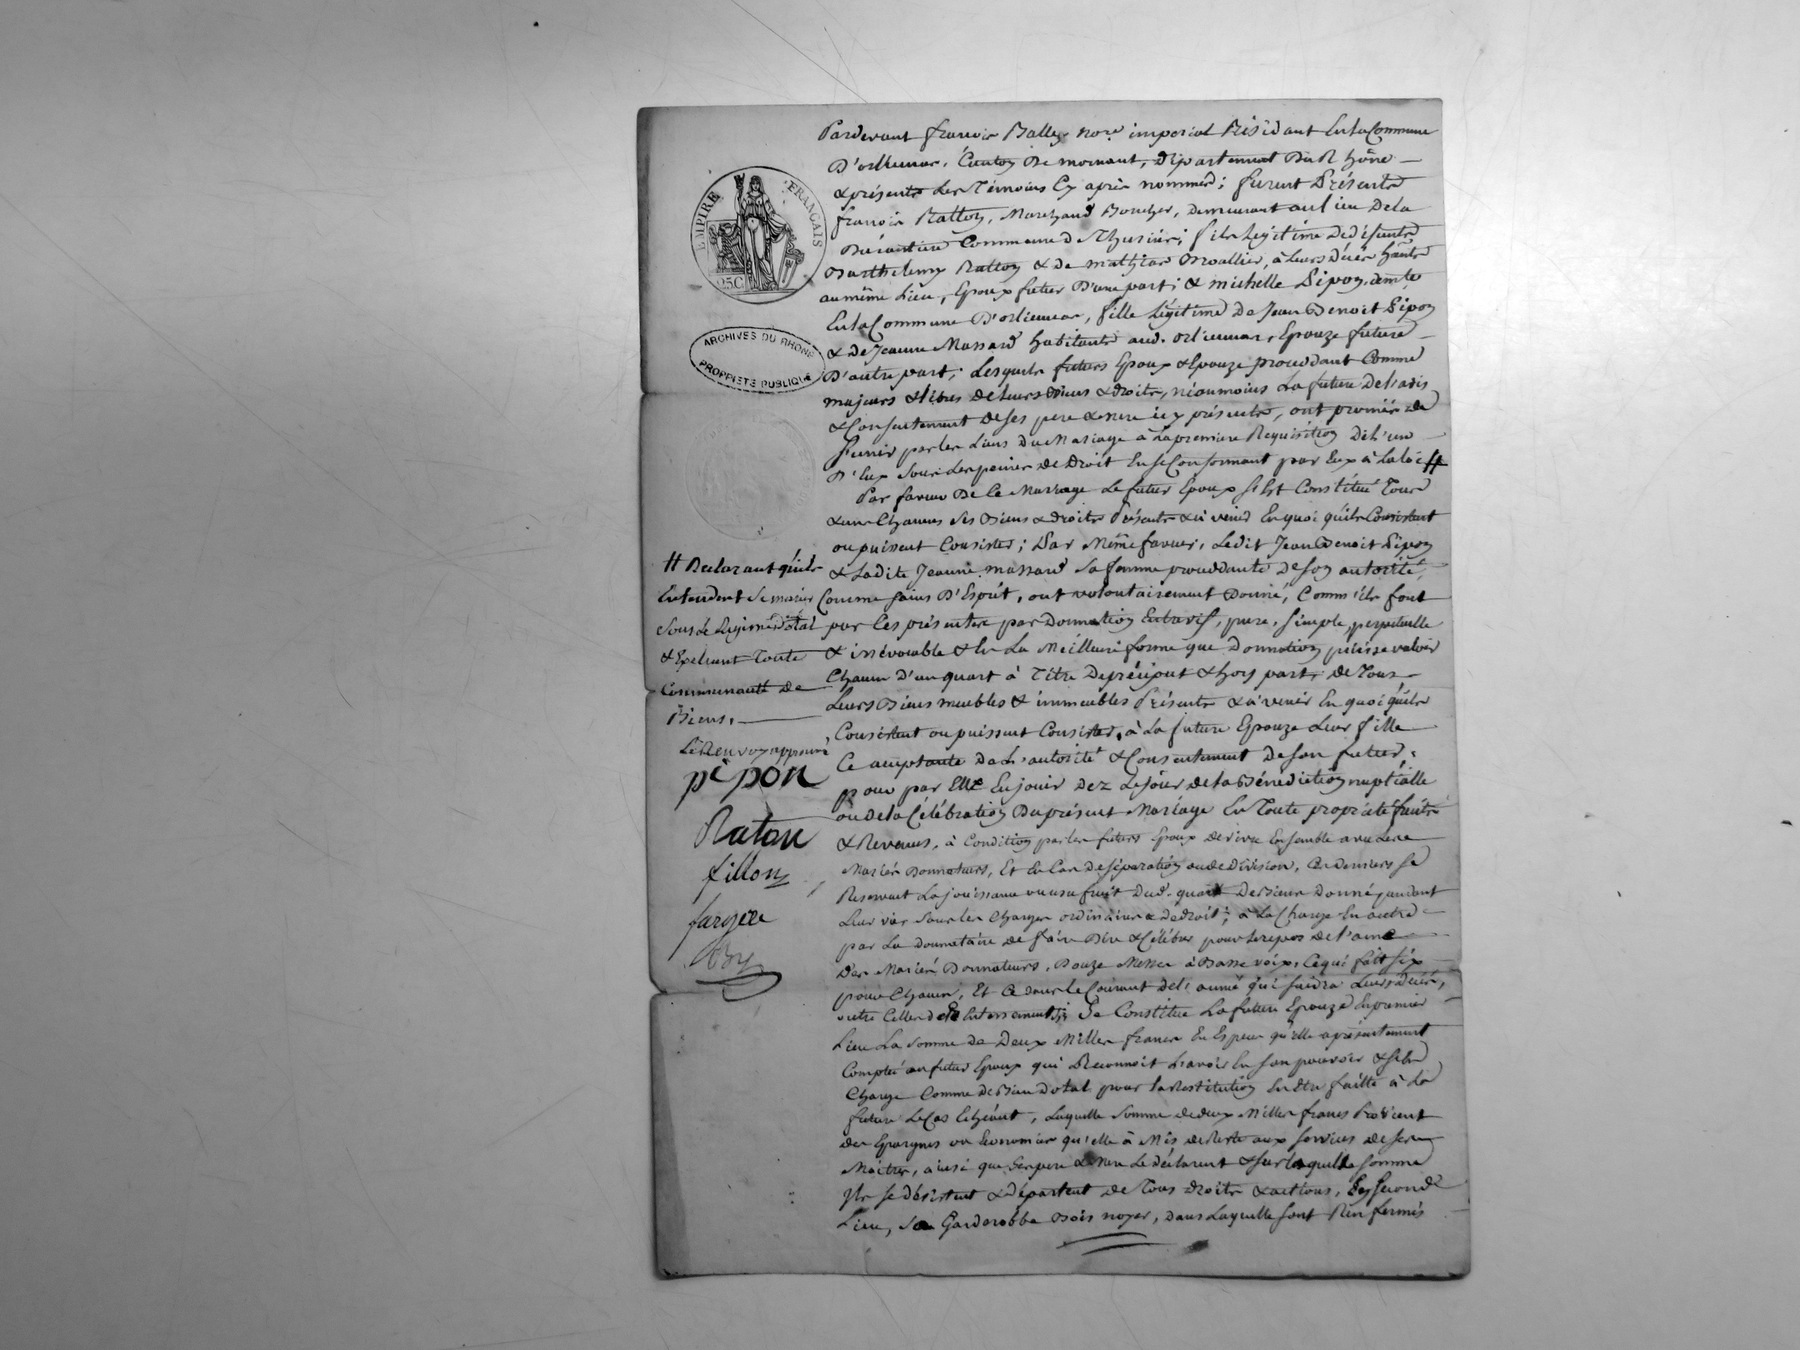 EMPIRE FRANÇAIS
25C
ARCHIVES DU RHÔNE
PROPRIETE PUBLIQUE
Pardevant françois Balley nore impérial Résidant En la Commune
D'orlienas, Canton De mornant, département Du Rhône
& présents les Témoins Cy après nommés; furent Présents
françois Ratton, Marchand Boucher, demeurant au lieu De la
Commune de Thurins; fils légitime De défunts
Barthelemy Ratton & de mathias, à leurs décès habts
au même Lieu, Epoux futur D'une part; & michelle Pipon demte
En la Commune D'orlienas, fille légitime De Jean Benoit Pipon
& de Jeanne Massard habitants aud. orlienas, Epouze future
D'autre part; Lesquels futurs Epoux & Epouze procédant Comme
majeurs & libres de leurs biens & droits, néanmoins La future De l'avis
& Consentement de ses pere & mere icy présents, ont promis de
s'unir par les Liens Du Mariage à la premiere Réquisition De l'un
D'Eux sous les peines de Droit En se Conformant par Eux à la loi #
Par faveur De Ce Mariage Le futur Epoux s'est Constitué Tous
& uns Chacuns ses Biens & droits Présents & à venir En quoi qu'ils Consistent
ou puissent Consister; Par Même faveur, Ledit Jean Benoit Pipon
& Ladite Jeanne massard sa femme procédante De son autorité,
Comme sains D'Esprit, ont volontairement Donné, Comm'ils font
par Ces présentes par Donnation Entrevifs, pure, simple, perpetuelle
& irrévocable & En La Meilleure forme que Donnation puisse valoir
Chacun d'un quart à Titre De préciput & hors part, de Tous
Leurs Biens meubles & immeubles Présents & à venir En quoi qu'ils
Consistent ou puissent Consister, à La future Epouze Leur fille
Ce acceptante de L'autorité & Consentement De son futur;
pour par Elle En jouir Dez Le jour de la Bénédiction nuptialle
ou De la Célébration Du présent Mariage En Toute propriété fruits
& Revenus, à Condition par les futurs Epoux de vivre Ensemble avec Les
Mariés Donnateurs, Et En Cas de séparation ou de division, Ces derniers se
Reservent La jouissance ou usufruit Dud. quart Des biens Donné pendant
Leur vie sous les Charges ordinaires & de droit; à La Charge En outre
par La Donnataire de faire Dire & Célébrer pour le repos de l'ame
Des Mariés Donnateurs, Douze Messes à Basse voix, Ce qui fait six
pour Chacun, Et Ce dans le Courant de l'année qui suivra Leurs décès,
outre Celles de Enterrements; Se Constitue La future Epouze En premier
Lieu La somme de Deux Milles francs En Especes qu'elle a présentement
Compté au futur Epoux qui Reconnoit L'avoir En son pouvoir & s'En
Charge Comme de Bien dotal pour la Restitution En Etre faitte à La
future Le Cas Echéant, Laquelle somme de deux Milles francs Provient
des Epargnes ou Economies qu'elle à Mis de Reste aux services de ses
Maitres, ainsi que ses pere & mere Le déclarent & sur laquelle somme
Ils se désistent & départent de Tous droits & actions, En second
Lieu, Sa Garderobbe Bois noyer, dans Laquelle sont Renfermés
# Declarant qu'ils
Entendent se marier
Sous le Régime Dotal
& Excluant Toute
Communauté de
Biens.
Le Renvoy approuvé
pipon
Raton
fillon
fargere